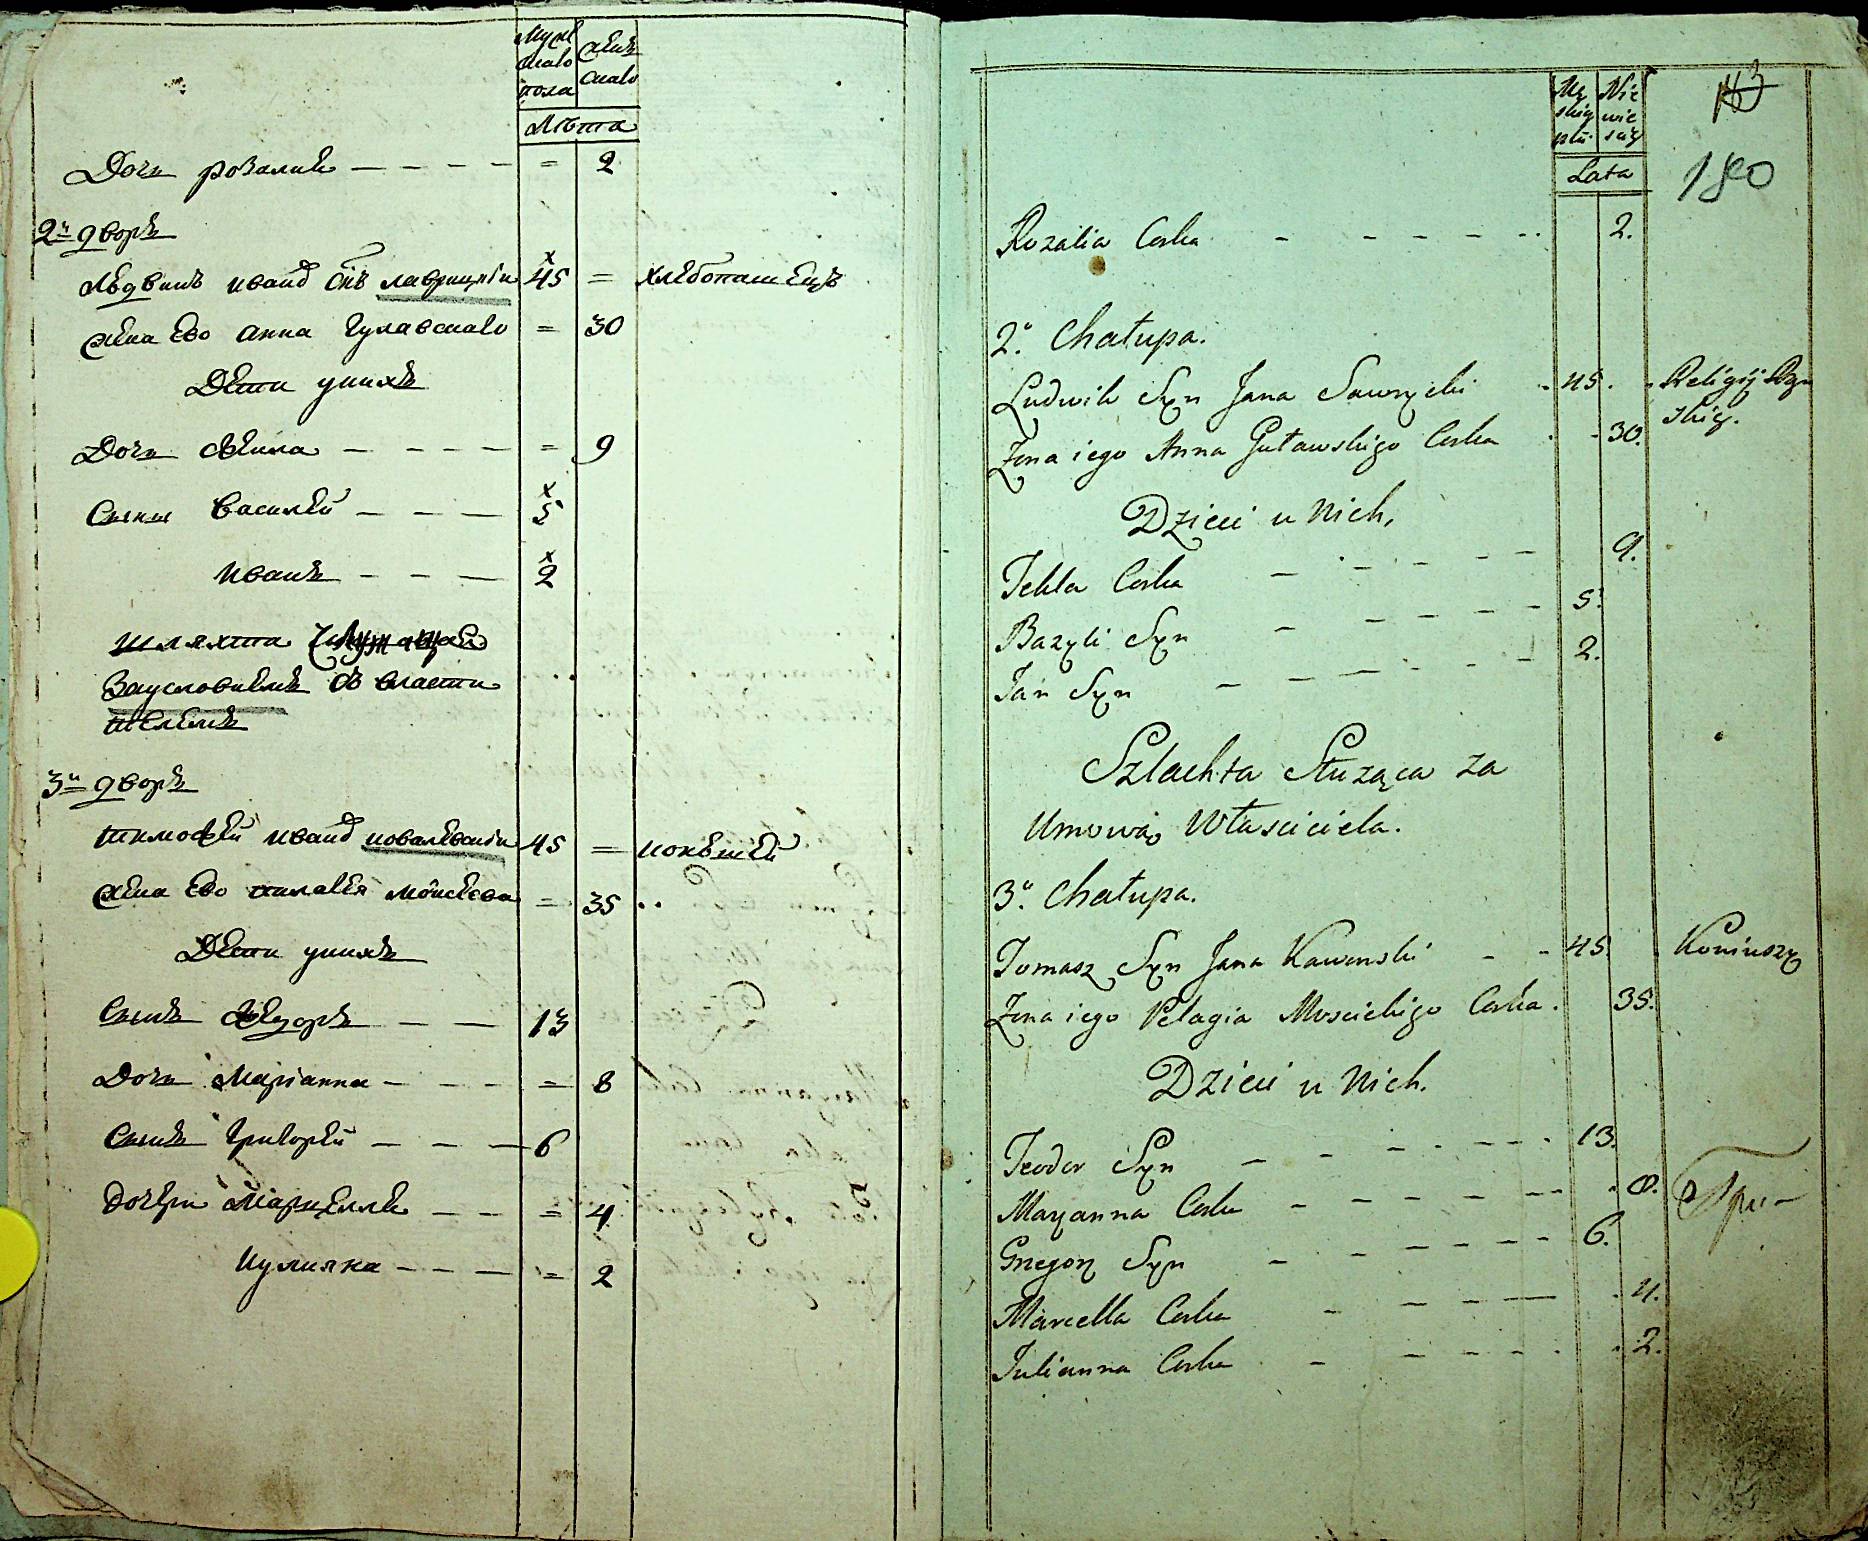 Мужескаго пола
женскаго
Лѣта
Дочь розалия — — — — = 2
2й дворъ
Людвикъ Иванов Снъ лаврицкій 45 = хлебопашецъ
жена Ево анна гулавскаго = 30
Дети у нихъ
Дочь Ѳекла — — — — = 9
Сыны василей — — — 5
Иванъ — — — 2
шляхта служащая
За условиемъ съ власти
телемъ
3й дворъ
тимофей Иванов ковалевскій 45 = конюшей
жена Ево пилагея = 35
Дети у нихъ
Сынъ Ѳедоръ — — 13
Дочь Марианна — — — = 8
Сынъ Григорей — — — 6
дочери Марцелля — — = 4
Иулияна — — — = 2
Mę skiey płci
Nie wie sciey
43
Lata
180
Rozalia Corka - - - - - 2.
2o. Chałupa.
Ludwik Syn Jana Lawrycki - 45. Religij Rzy
skiey.
Zona iego Anna Gutawskigo Corka - 30.
Dzieci u Nich,
Tekla Corka - - - - - 9.
Bazyli Syn - - - - - 5.
Jan Syn - - - - - 2.
Szlachta Służąca za
Umową Własciciela.
3o. Chałupa.
Tomasz Syn Jana Kawenski - - 45. Koniuszy
Zona iego Pelagia Moscickigo Corka. 35.
Dzieci u Nich.
Teodor Syn - - - - - 13.
Maryanna Corka - - - - - 8.
Gregorz Syn - - - - - 6.
Marcella Corka - - - - 4.
Julianna Corka - - - - - 2.